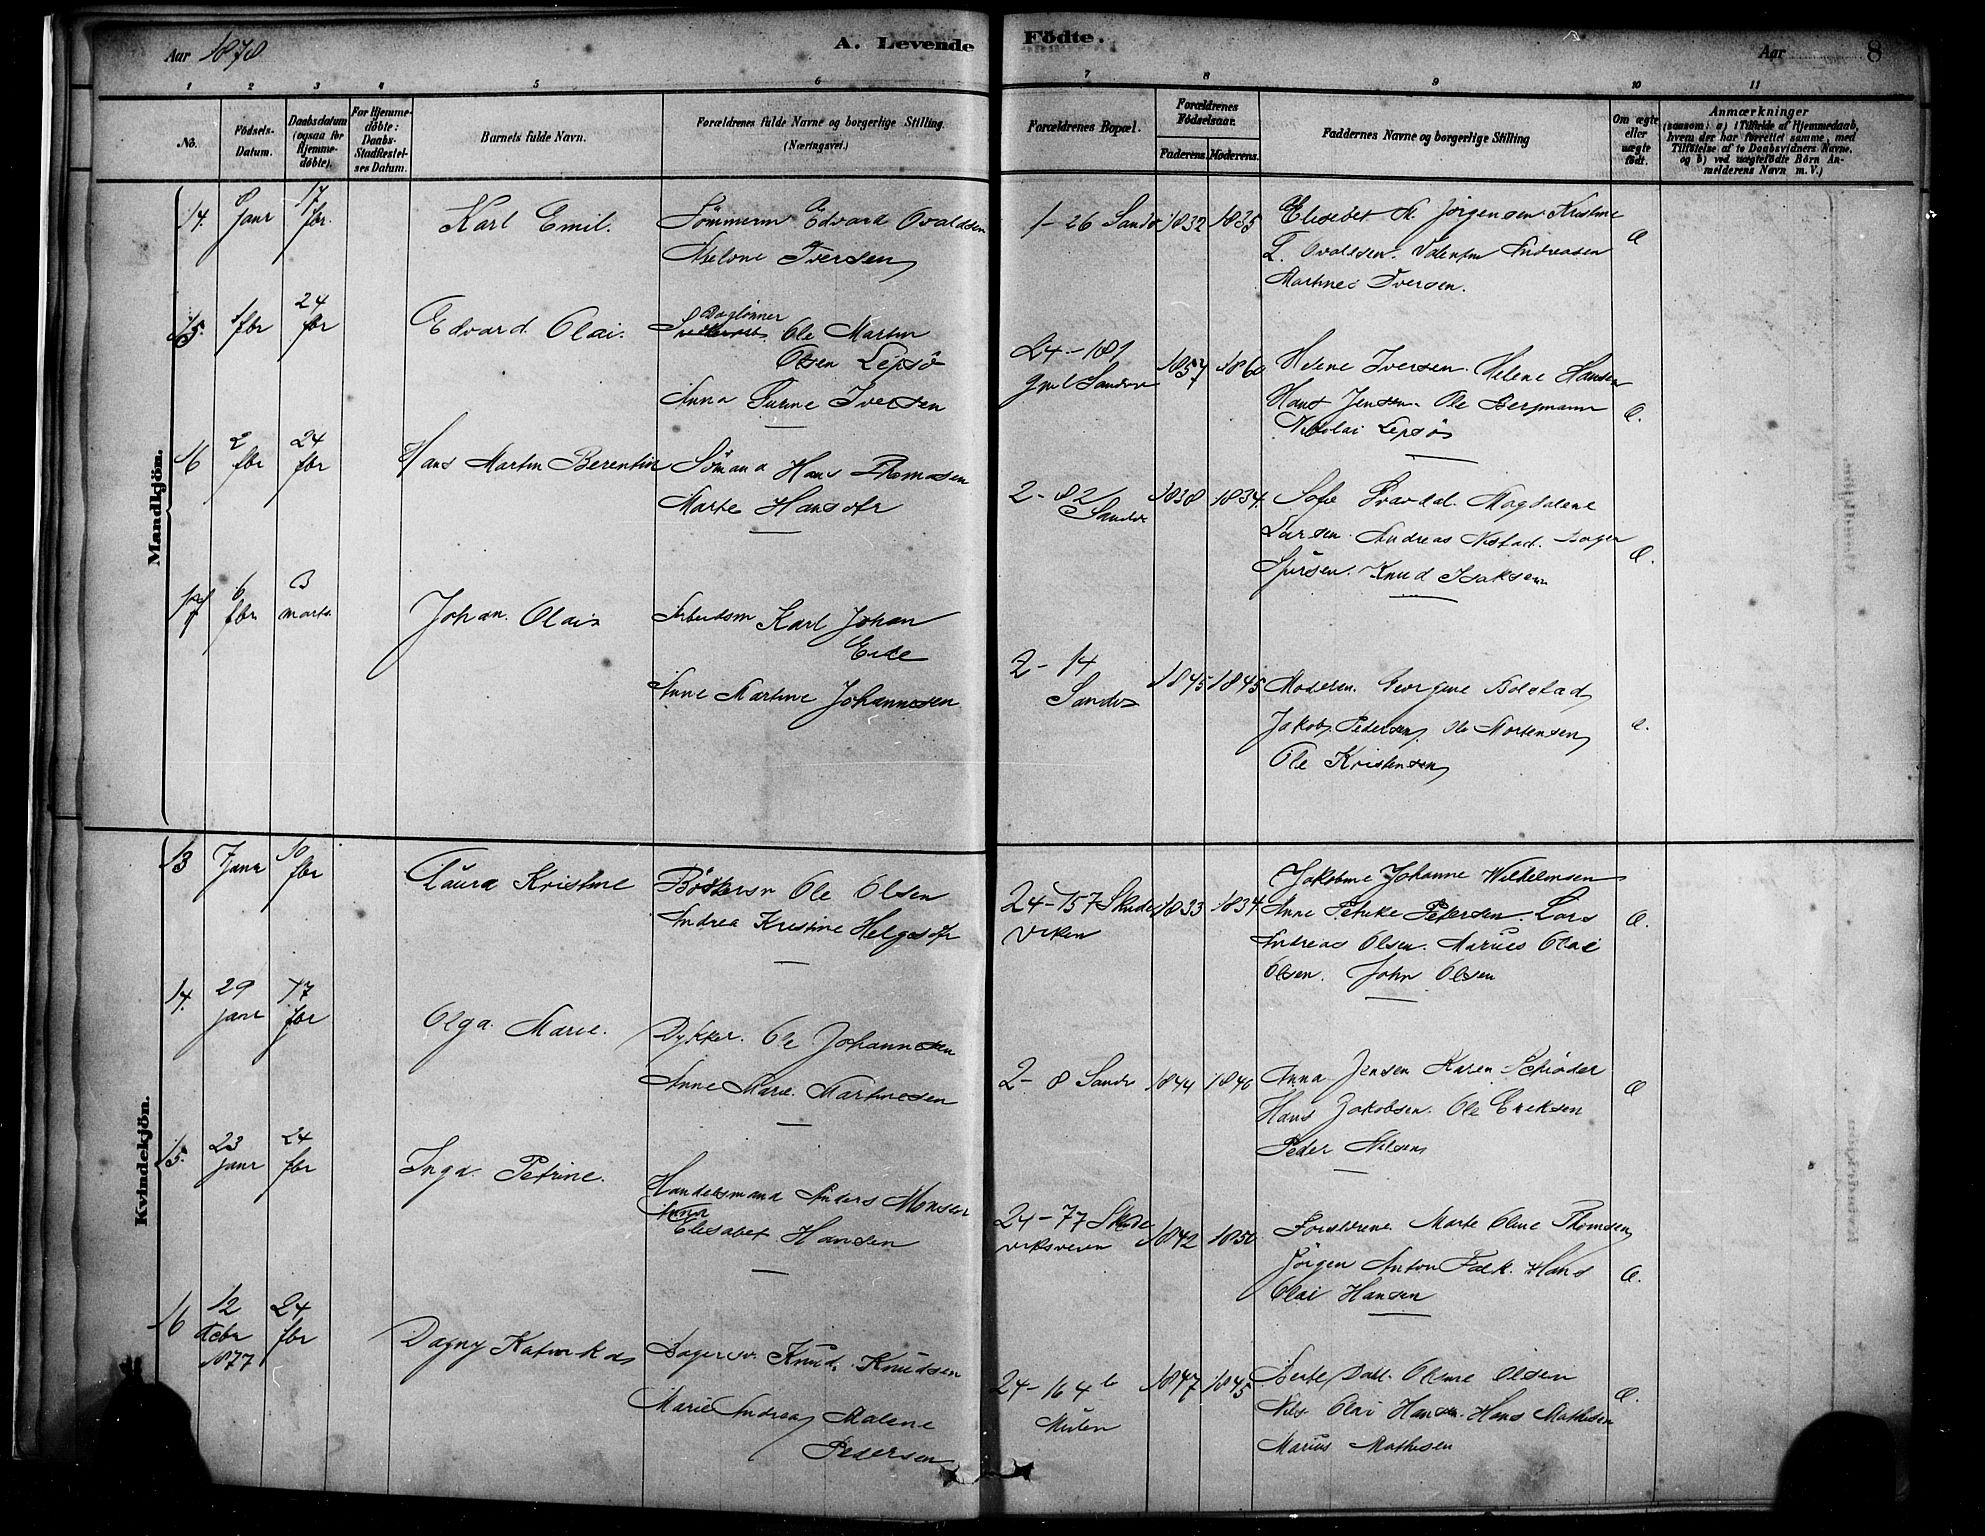 Aar 1878
A. Levende Födte.
Aar 8
1 2 3 4 5 6 7 8 9 10 11
No.
Födsels-
Datum.
Daabsdatum
(ogsaa for
Hjemme-
døbte).
For Hjemme-
døbte:
Daabs-
Stadfæstel-
ses Datum.
Barnets fulde Navn.
Forældrenes fulde Navne og borgerlige Stilling.
(Næringsvei.)
Forældrenes Bopæl.
Forældrenes
Födselsaar.
Faderens. Moderens.
Faddernes Navne og borgerlige Stilling
Om ægte
eller
uægte
født.
Anmærkninger
(saasom: a) i Tilfælde af Hjemmedaab,
hvem der har forrettet samme, med
Tilföielse af to Daabsvidners Navne,
og b) ved uægtefödte Börn An-
melderens Navn m. V.)
Mandkjön.
14. 8 Janr 17 fbr. Karl Emil. Tömmerm Edvard Ovaldsen
Iversen
1-26 Sandv 1832 1835 Elisebet M. Jörgensen Kristine
L. Ovaldsen. Valentin Andreasen
Martines Iversen.
15. 1 fbr 24 fbr Edvard Olai. Daglönner
Ole Martin
Olsen Lepsö
Anna Iversen
24-181
Sandv 1857 1860 Helene Iversen. Helene Hansen
Hans Jensen. Ole Bergmann
Nikolai Lepsö
16 2 fbr 24 fbr Hans Martin Berentin Sömand Hans Thomasen
Marte Hansdtr
2-82
Sandv 1838 1834. Sofie Magdalene
Larsen. Andreas
Knud Isaksen
17 6 fbr 3 marts Johan. Olai Arbeidsm Karl Johan
Eide
Anne Martine Johannesen
2-14
Sandv 1845 1845 Moderen. Georgine Bolstad
Jakob Pedersen, Ole Mortensen
Ole Kristensen
Kvindekjön.
13 7 janr 10 fbr Laura Kristine Ole Olsen
Andrea Kristine Helgesdtr
24-157 Skude
viken 1833 1834 Jakobine Johanne Wilhelmsen
Anne Petrike Petersen. Lars
Andreas Olsen. Marius Olai
Olsen. John Olsen
14. 29 janr 17 fbr Olga. Marie. Dykker. Ole Johannesen
Anne Marie. Martinesen
2-8 Sandv 1844 1846 Anna Jensen Karen Schröder
Hans Jakobsen. Ole Eriksen
Peder Nilsen
15. 23 janr 24 fbr Inga. Petrine. Handelsmand Anders Monsen
Anna
Elisabet Hansen
24-77 Skude
viksveien 1842 1850 Forældrene Marte Oline Thomsen
Jörgen Anton Falk. Hans
Olai Hansen
16 12 Decbr 1877 24 fbr Dagny Katinka Bagersv. Knud. Knudsen
Marie Andrea Malene
Pedersen
24-164 b
Mulen 1847 1845 Berte Dahl. Oline Olsen
Nils Olai Hansen. Hans Mathisen
Marius Mathisen